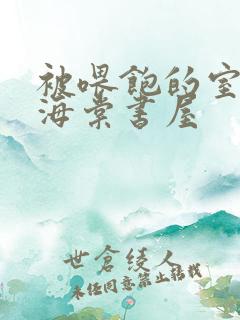 被喂饱的室
海棠书屋
世仓绫人
未经同意禁止转载